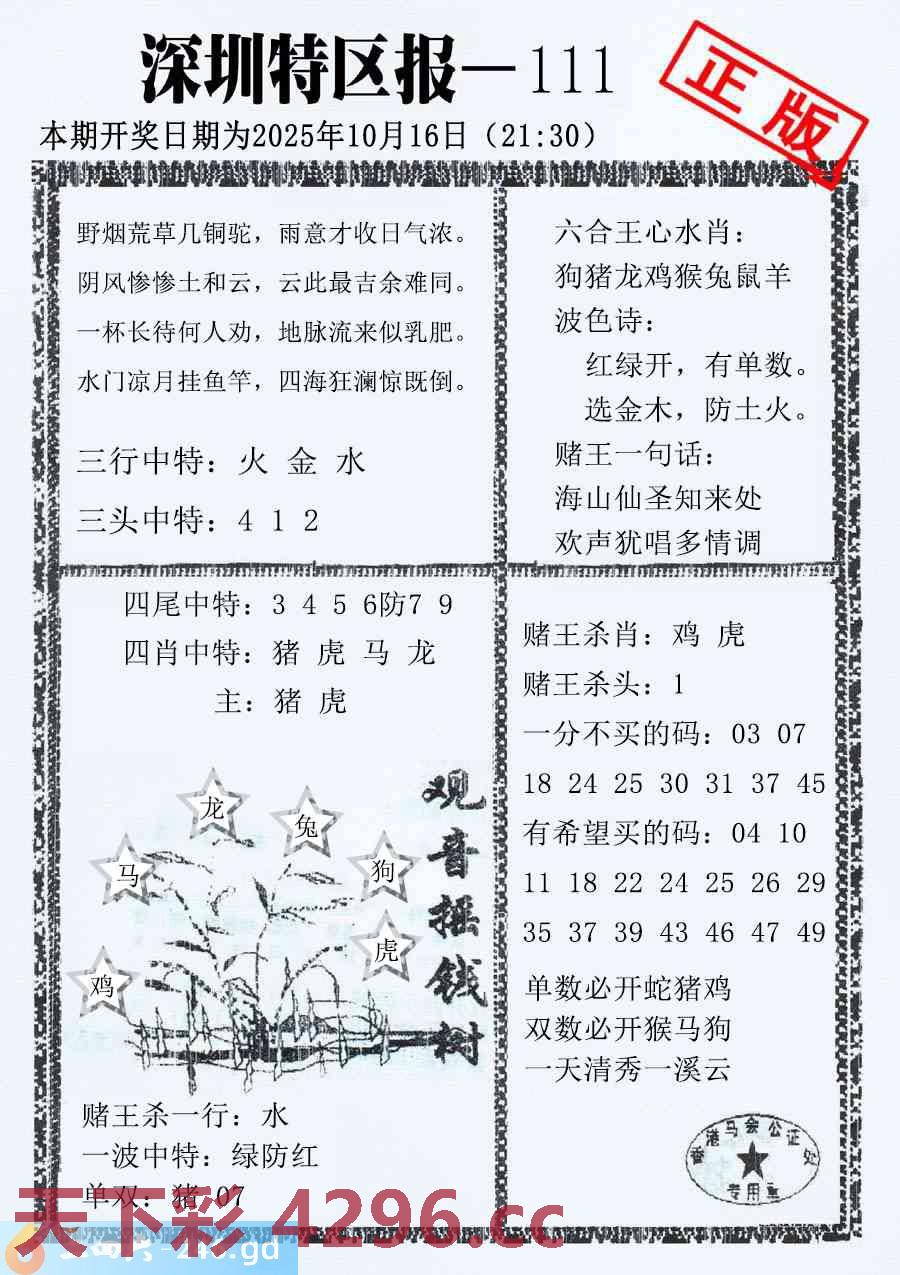 深圳特区报—111
正版
本期开奖日期为2025年10月16日（21:30）
野烟荒草几铜驼，雨意才收日气浓。
阴风惨惨土和云，云此最吉余难同。
一杯长待何人劝，地脉流来似乳肥。
水门凉月挂鱼竿，四海狂澜惊既倒。
三行中特：火 金 水
三头中特：4 1 2
六合王心水肖：
狗猪龙鸡猴兔鼠羊
波色诗：
红绿开，有单数。
选金木，防土火。
赌王一句话：
海山仙圣知来处
欢声犹唱多情调
四尾中特：3 4 5 6防7 9
四肖中特：猪 虎 马 龙
主：猪 虎
龙
兔
马
狗
虎
鸡
观音摇钱树
赌王杀一行：水
一波中特：绿防红
单双：猪 07
赌王杀肖：鸡 虎
赌王杀头：1
一分不买的码：03 07
18 24 25 30 31 37 45
有希望买的码：04 10
11 18 22 24 25 26 29
35 37 39 43 46 47 49
单数必开蛇猪鸡
双数必开猴马狗
一天清秀一溪云
香港马会公证处
专用章
天下彩 4296.cc